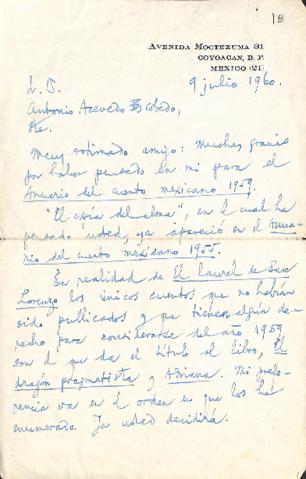 18
AVENIDA MOCTEZUMA 31
COYOACAN, D. F.
MEXICO (21)
9 julio 1960.
Antonio Acevedo Escobedo,
Pte.
Muy estimado amigo: Muchas gracias
por haber pensado en mí para el
Anuario del cuento mexicano 1959.
"El espía del alma", en el cual ha
pensado usted, ya apareció en el Anua-
rio del cuento mexicano 1955.
En realidad de El laurel de San
Lorenzo los únicos cuentos que no habrán
sido publicados y que tienen algún de-
recho para considerarse del año 1959
son el que da el título al libro, El
dragón pragmatista y Adriana. Mi prefe-
rencia va en el orden en que los he
enumerado. Ya usted decidirá.